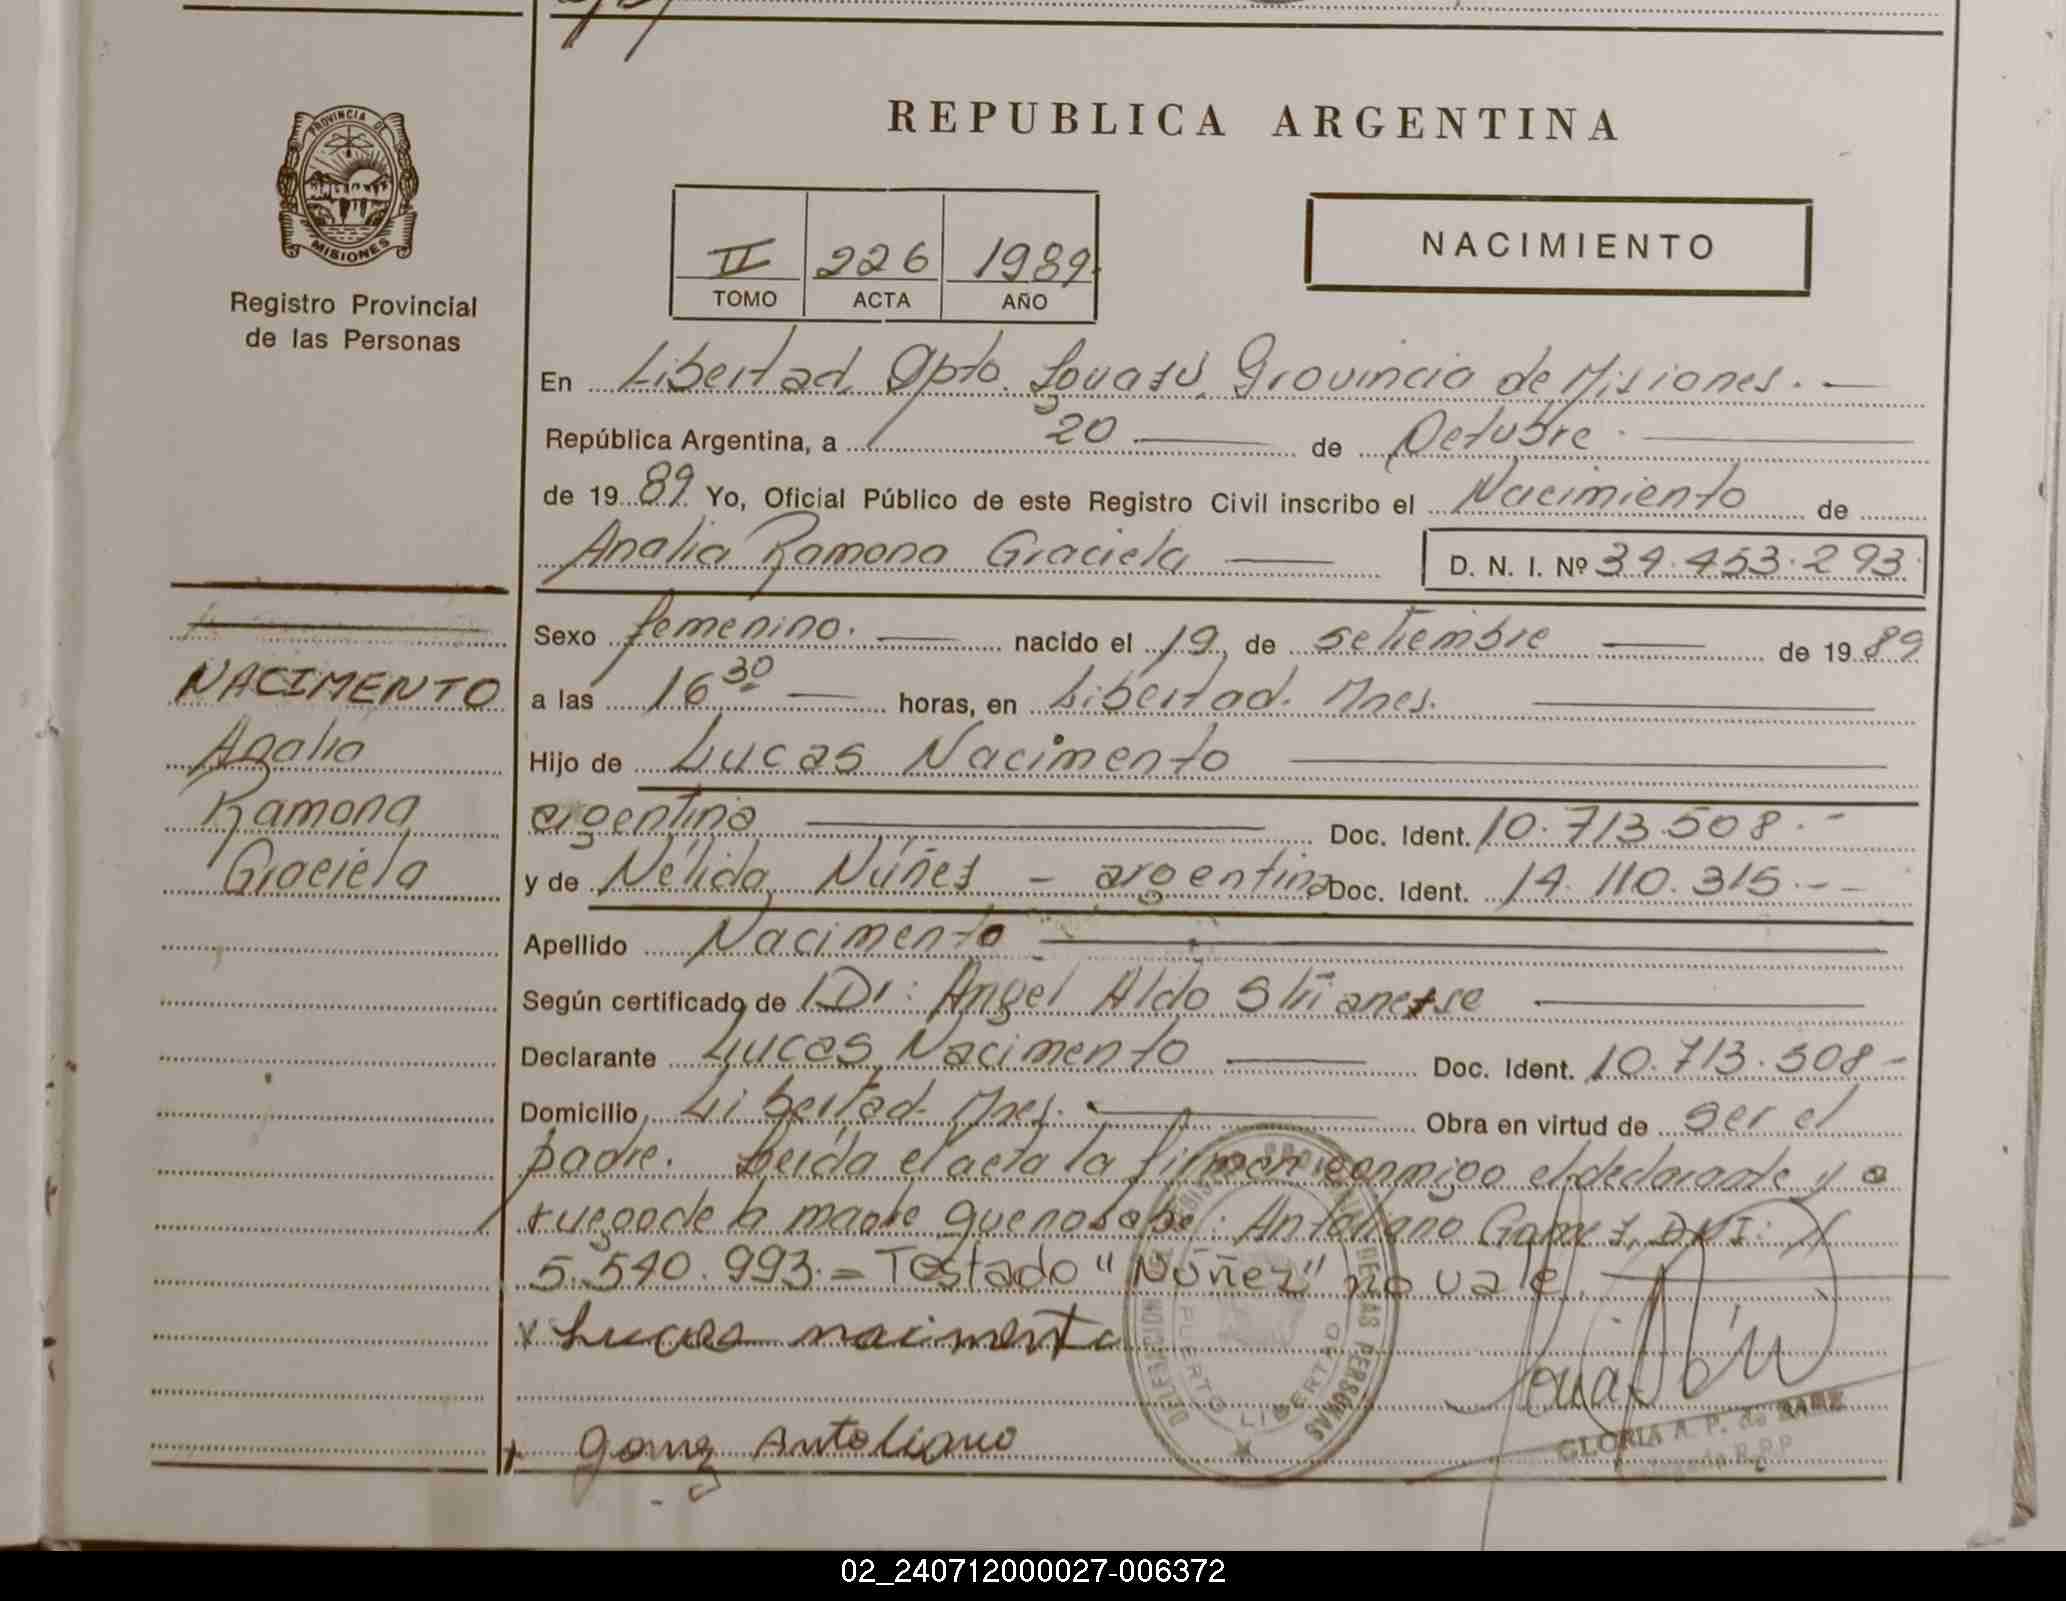 REPUBLICA ARGENTINA
PROVINCIA DE
MISIONES
Registro Provincial
de las Personas
II 226 1989
TOMO ACTA AÑO
NACIMIENTO
En Libertad Dpto. Iguazú Provincia de Misiones. —
República Argentina, a 20 — de Octubre. —
de 1989. Yo, Oficial Público de este Registro Civil inscribo el Nacimiento de
Analia Ramona Graciela — D. N. I. Nº 34.453.293.
NACIMENTO
Analia
Ramona
Graciela
Sexo femenino. — nacido el 19 de setiembre — de 1989
a las 16 30 — horas, en Libertad. Mnes. —
Hijo de Lucas Nacimento —
argentina — Doc. Ident. 10.713.508.-
y de Nélida Núñes - argentina Doc. Ident. 14.110.315.--
Apellido Nacimento —
Según certificado de Dr: Angel Aldo —
Declarante Lucas Nacimento — Doc. Ident. 10.713.508-
Domicilio Libertad. Mnes. — Obra en virtud de ser el
padre. Leída el acta la firman conmigo el declarante y a
ruego de la madre que no sabe: Antoliano Gomez, DNI:
5.540.993.= Testado "Núñez" no vale.
x Lucas nacimento
x gomez Antoliano
PUERTO LIBERTAD
DE LAS PERSONAS
GLORIA A. P. de
R.P.P
02_240712000027-006372